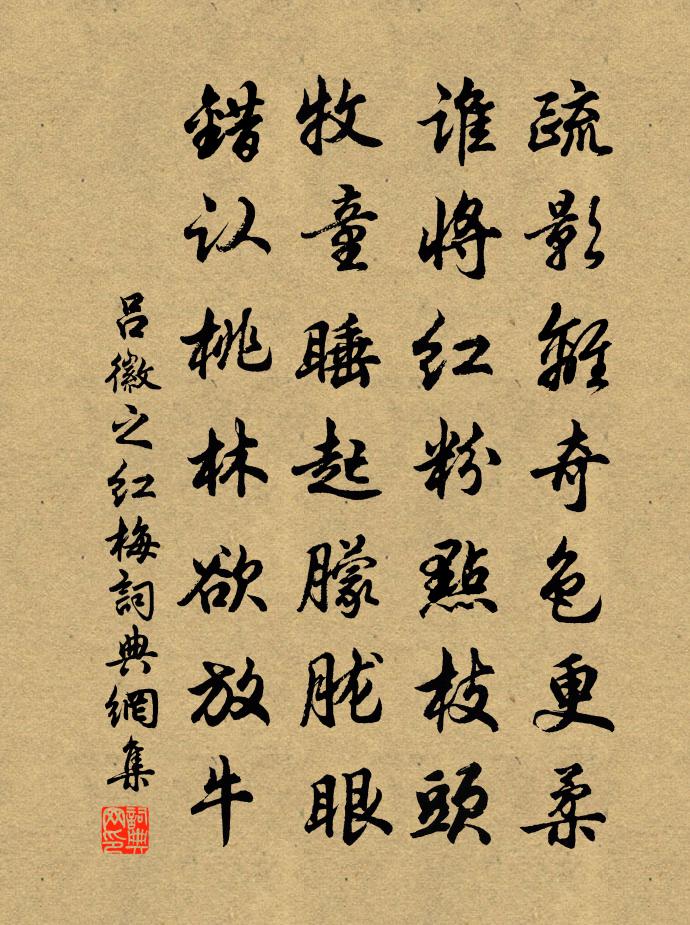 疏影離奇色更柔
谁將红粉點枝頭
牧童睡起朦胧眼
錯认桃林欲放牛
吕徽之红梅詞典網集
詞典网印